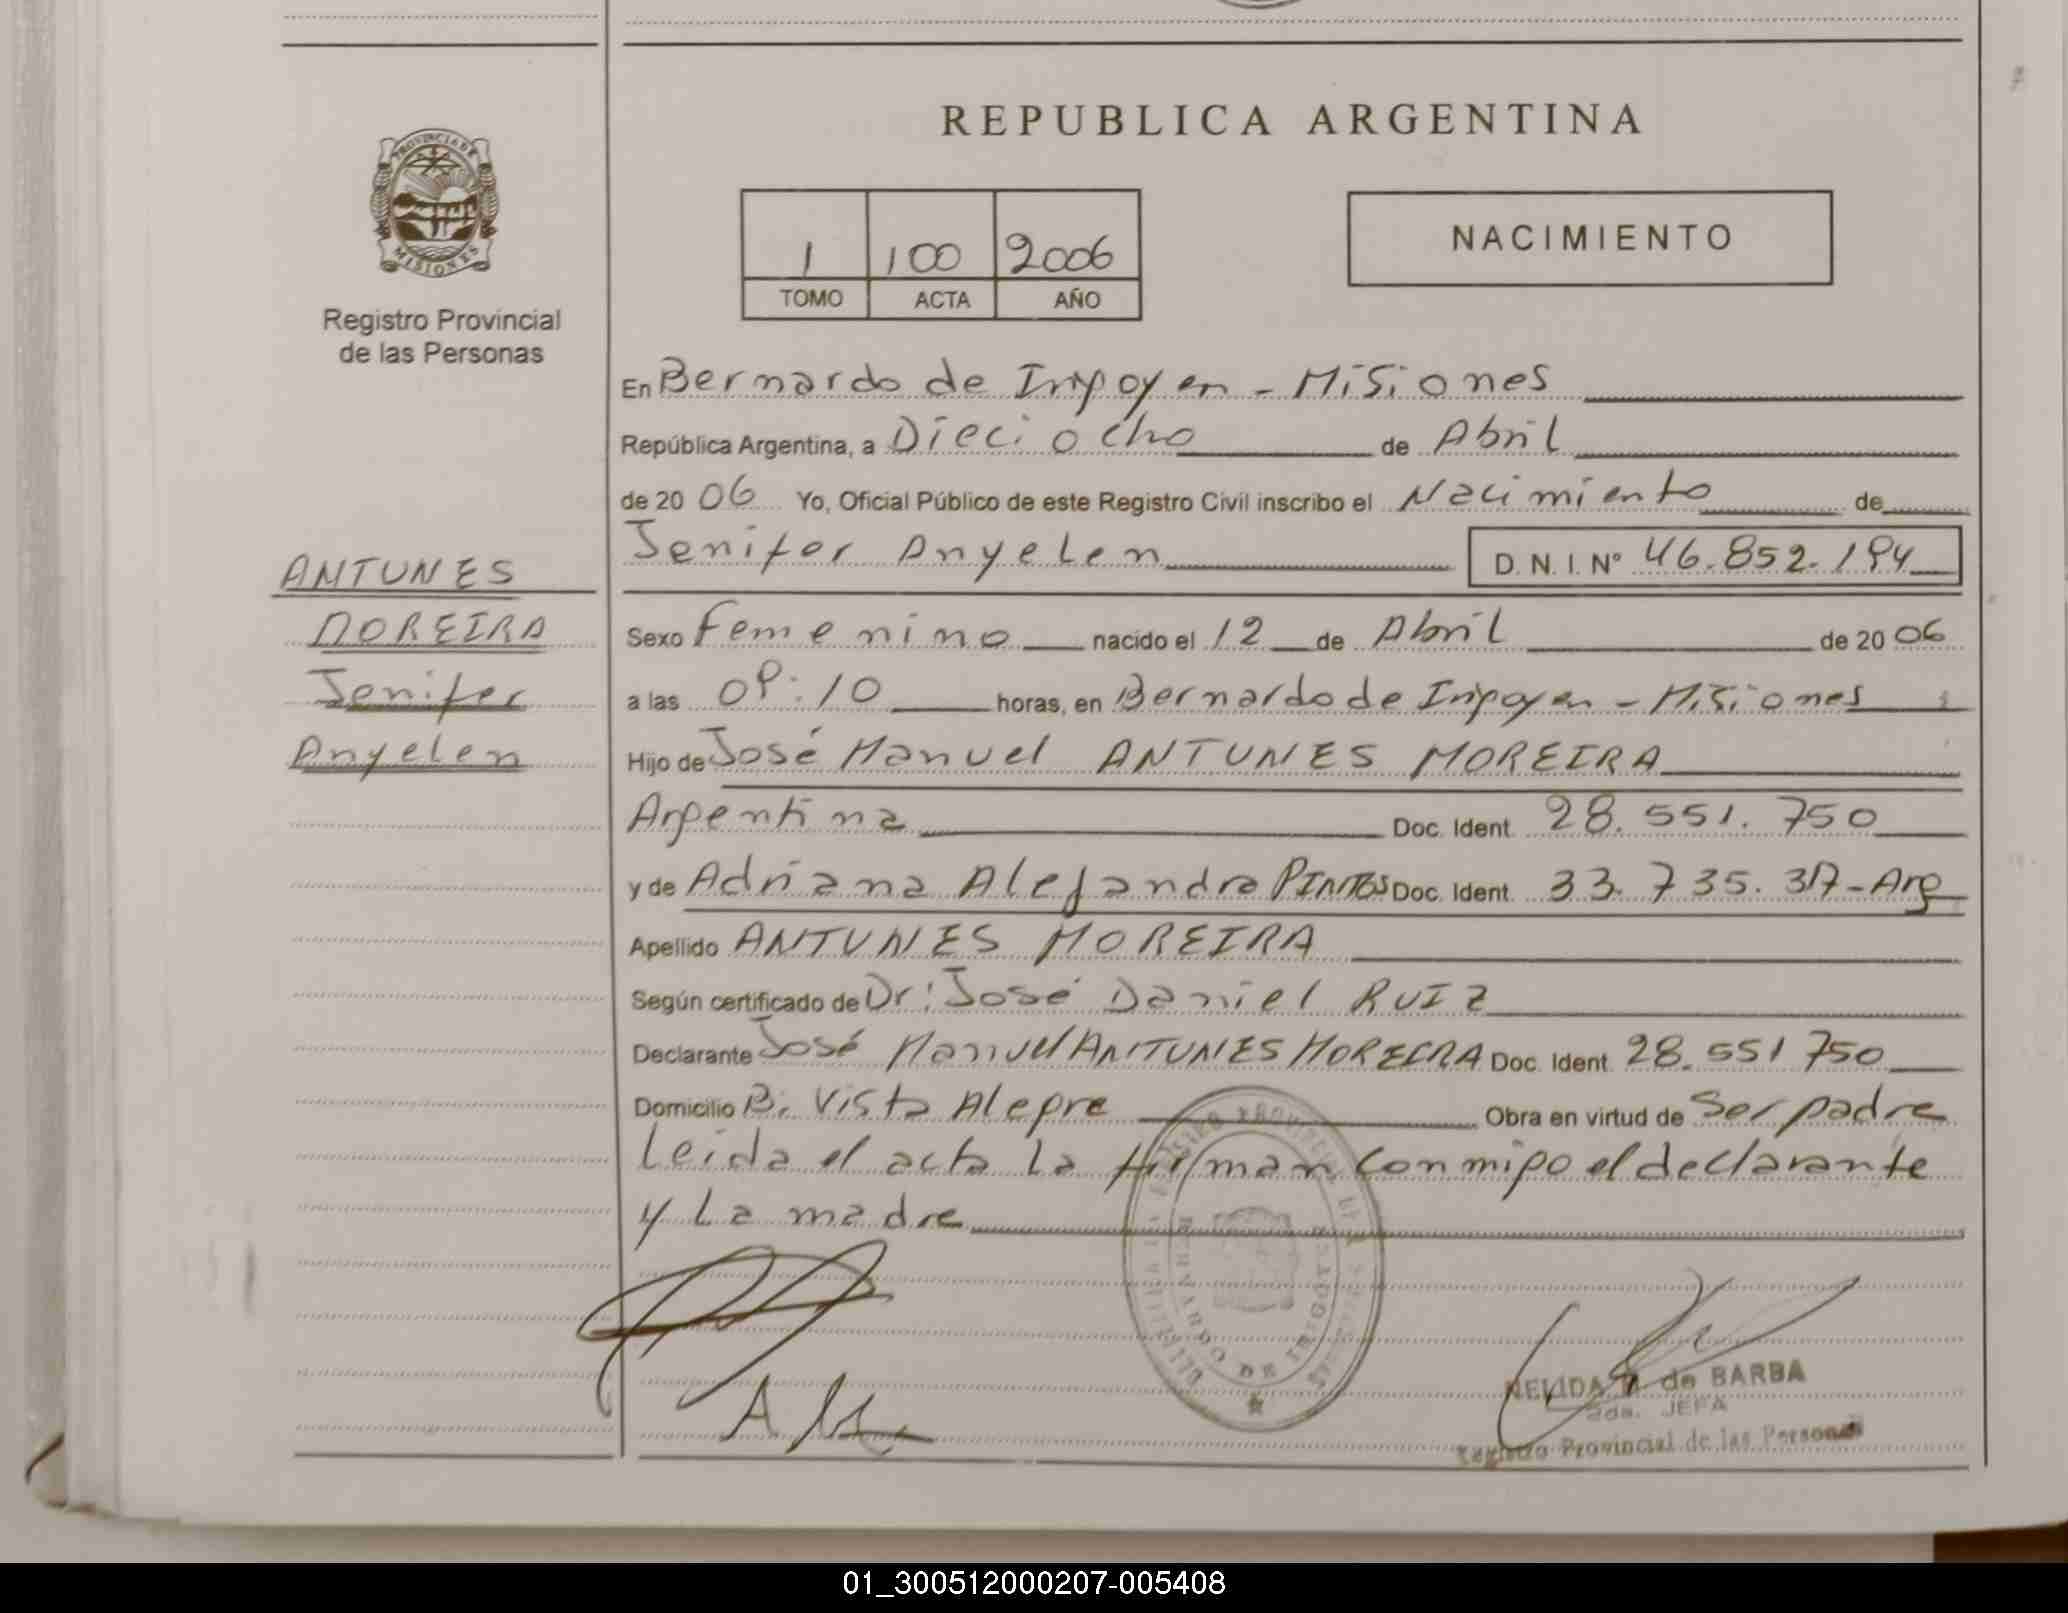 REPUBLICA ARGENTINA
PROVINCIA DE
MISIONES
Registro Provincial
de las Personas
1 100 2006
TOMO ACTA AÑO
NACIMIENTO
En Bernardo de Irigoyen - Misiones
República Argentina, a Dieciocho de Abril
de 20 06 Yo, Oficial Público de este Registro Civil inscribo el Nacimiento de
Jenifer Anyelen D. N. I. Nº 46.852.194
ANTUNES
MOREIRA
Jenifer
Anyelen
Sexo Femenino nacido el 12 de Abril de 20 06
a las 09:10 horas, en Bernardo de Irigoyen - Misiones
Hijo de José Manuel ANTUNES MOREIRA
Argentina Doc. Ident. 28.551.750
y de Adriana Alejandra PINTOS Doc. Ident. 33.735.317 - Arg
Apellido ANTUNES MOREIRA
Según certificado de Dr: José Daniel RUIZ
Declarante José Manuel ANTUNES MOREIRA Doc. Ident. 28.551 750
Domicilio B. Vista Alegre Obra en virtud de Ser padre
Leida el acta la firman conmigo el declarante
y La madre
NELIDA de BARBA
JEFA
Registro Provincial de las Personas
01_300512000207-005408